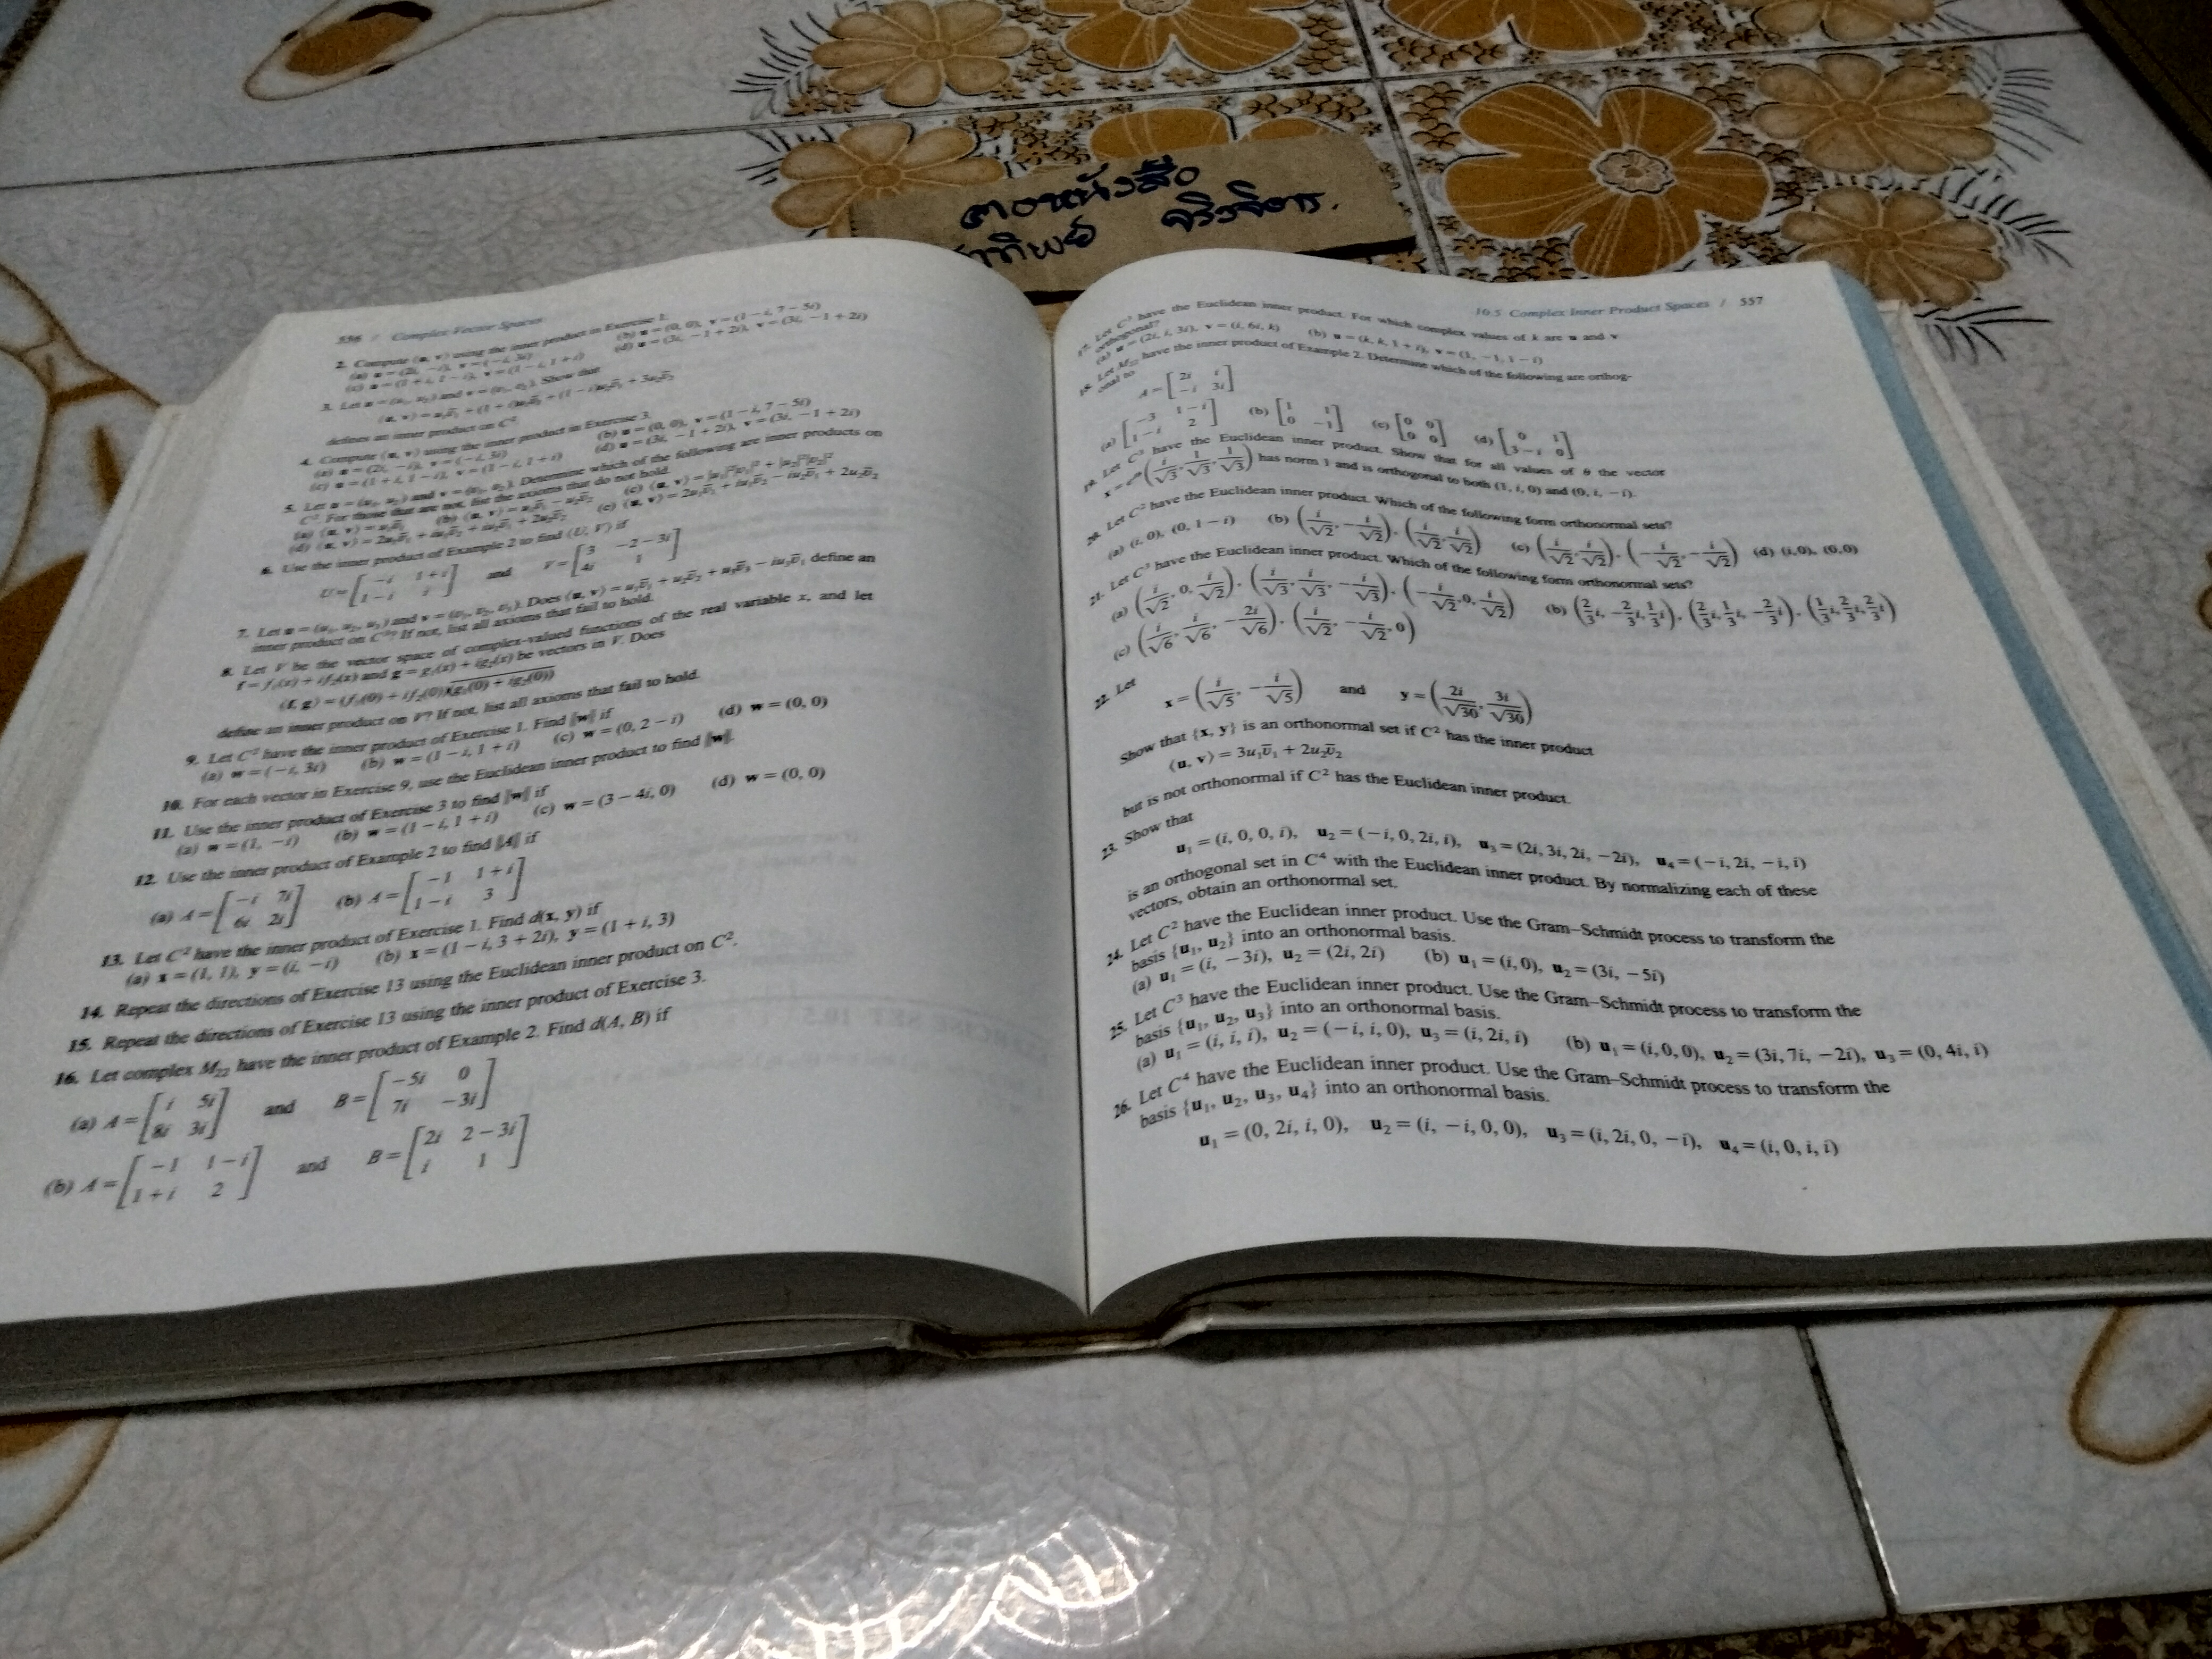 ตอหนังสือ
จิรวิจิตร.
556 / Complex Vector Spaces
2. Compute ⟨u, v⟩ using the inner product in Exercise 1.
(a) u = (2i, −i), v = (−i, 3i) (b) u = (0, 0), v = (1 − i, 7 − 5i)
(c) u = (1 + i, 1 − i), v = (1 − i, 1 + i) (d) u = (3i, −1 + 2i), v = (3i, −1 + 2i)
3. Let u = (u₁, u₂) and v = (v₁, v₂). Show that
⟨u, v⟩ = u₁v̅₁ + (1 + i)u₁v̅₂ + (1 − i)u₂v̅₁ + 3u₂v̅₂
defines an inner product on C².
4. Compute ⟨u, v⟩ using the inner product in Exercise 3.
(a) u = (2i, −i), v = (−i, 3i) (b) u = (0, 0), v = (1 − i, 7 − 5i)
(c) u = (1 + i, 1 − i), v = (1 − i, 1 + i) (d) u = (3i, −1 + 2i), v = (3i, −1 + 2i)
5. Let u = (u₁, u₂) and v = (v₁, v₂). Determine which of the following are inner products on
C². For those that are not, list the axioms that do not hold.
(a) ⟨u, v⟩ = u₁v̅₁ (b) ⟨u, v⟩ = u₁v̅₁ − u₂v̅₂ (c) ⟨u, v⟩ = |u₁|²|v₁|² + |u₂|²|v₂|²
(d) ⟨u, v⟩ = 2u₁v̅₁ + iu₁v̅₂ + iu₂v̅₁ + 2u₂v̅₂ (e) ⟨u, v⟩ = 2u₁v̅₁ + iu₁v̅₂ − iu₂v̅₁ + 2u₂v̅₂
6. Use the inner product of Example 2 to find ⟨U, V⟩ if
U = [−i 1 + i; 1 − i i] and V = [3 −2 − 3i; 4i 1]
7. Let u = (u₁, u₂, u₃) and v = (v₁, v₂, v₃). Does ⟨u, v⟩ = u₁v̅₁ + u₂v̅₂ + u₃v̅₃ − iu₃v̅₁ define an
inner product on C³? If not, list all axioms that fail to hold.
8. Let V be the vector space of complex-valued functions of the real variable x, and let
f = f₁(x) + if₂(x) and g = g₁(x) + ig₂(x) be vectors in V. Does
⟨f, g⟩ = (f₁(0) + if₂(0))(g₁(0) + ig₂(0))
define an inner product on V? If not, list all axioms that fail to hold.
9. Let C² have the inner product of Exercise 1. Find ‖w‖ if
(a) w = (−i, 3i) (b) w = (1 − i, 1 + i) (c) w = (0, 2 − i) (d) w = (0, 0)
10. For each vector in Exercise 9, use the Euclidean inner product to find ‖w‖.
11. Use the inner product of Exercise 3 to find ‖w‖ if
(a) w = (1, −i) (b) w = (1 − i, 1 + i) (c) w = (3 − 4i, 0) (d) w = (0, 0)
12. Use the inner product of Example 2 to find ‖A‖ if
(a) A = [−i 7i; 6i 2i] (b) A = [−1 1 + i; 1 − i 3]
13. Let C² have the inner product of Exercise 1. Find d(x, y) if
(a) x = (1, 1), y = (i, −i) (b) x = (1 − i, 3 + 2i), y = (1 + i, 3)
14. Repeat the directions of Exercise 13 using the Euclidean inner product on C².
15. Repeat the directions of Exercise 13 using the inner product of Exercise 3.
16. Let complex M₂₂ have the inner product of Example 2. Find d(A, B) if
(a) A = [i 5i; 8i 3i] and B = [−5i 0; 7i −3i]
(b) A = [−1 1 − i; 1 + i 2] and B = [2i 2 − 3i; i 1]
10.5 Complex Inner Product Spaces / 557
17. Let C³ have the Euclidean inner product. For which complex values of k are u and v
orthogonal?
(a) u = (2i, i, 3i), v = (i, 6i, k) (b) u = (k, k, 1 + i), v = (1, −1, 1 − i)
18. Let M₂₂ have the inner product of Example 2. Determine which of the following are orthog-
onal to
A = [2i i; −i 3i]
(a) [−3 1 − i; 1 − i 2] (b) [1 1; 0 −1] (c) [0 0; 0 0] (d) [0 1; 3 − i 0]
19. Let C³ have the Euclidean inner product. Show that for all values of θ the vector
x = e^iθ (i/√3, 1/√3, 1/√3) has norm 1 and is orthogonal to both (1, i, 0) and (0, i, −i).
20. Let C² have the Euclidean inner product. Which of the following form orthonormal sets?
(a) (i, 0), (0, 1 − i) (b) (i/√2, −i/√2), (i/√2, i/√2) (c) (i/√2, i/√2), (−i/√2, −i/√2) (d) (i, 0), (0, 0)
21. Let C³ have the Euclidean inner product. Which of the following form orthonormal sets?
(a) (i/√2, 0, i/√2), (i/√3, i/√3, −i/√3), (−i/√2, 0, i/√2) (b) (2/3 i, −2/3 i, 1/3 i), (2/3 i, 1/3 i, −2/3 i), (1/3 i, 2/3 i, 2/3 i)
(c) (i/√6, i/√6, −2i/√6), (i/√2, −i/√2, 0)
22. Let
x = (i/√5, −i/√5) and y = (2i/√30, 3i/√30)
Show that {x, y} is an orthonormal set if C² has the inner product
⟨u, v⟩ = 3u₁v̅₁ + 2u₂v̅₂
but is not orthonormal if C² has the Euclidean inner product.
23. Show that
u₁ = (i, 0, 0, i), u₂ = (−i, 0, 2i, i), u₃ = (2i, 3i, 2i, −2i), u₄ = (−i, 2i, −i, i)
is an orthogonal set in C⁴ with the Euclidean inner product. By normalizing each of these
vectors, obtain an orthonormal set.
24. Let C² have the Euclidean inner product. Use the Gram–Schmidt process to transform the
basis {u₁, u₂} into an orthonormal basis.
(a) u₁ = (i, −3i), u₂ = (2i, 2i) (b) u₁ = (i, 0), u₂ = (3i, −5i)
25. Let C³ have the Euclidean inner product. Use the Gram–Schmidt process to transform the
basis {u₁, u₂, u₃} into an orthonormal basis.
(a) u₁ = (i, i, i), u₂ = (−i, i, 0), u₃ = (i, 2i, i) (b) u₁ = (i, 0, 0), u₂ = (3i, 7i, −2i), u₃ = (0, 4i, i)
26. Let C⁴ have the Euclidean inner product. Use the Gram–Schmidt process to transform the
basis {u₁, u₂, u₃, u₄} into an orthonormal basis.
u₁ = (0, 2i, i, 0), u₂ = (i, −i, 0, 0), u₃ = (i, 2i, 0, −i), u₄ = (i, 0, i, i)